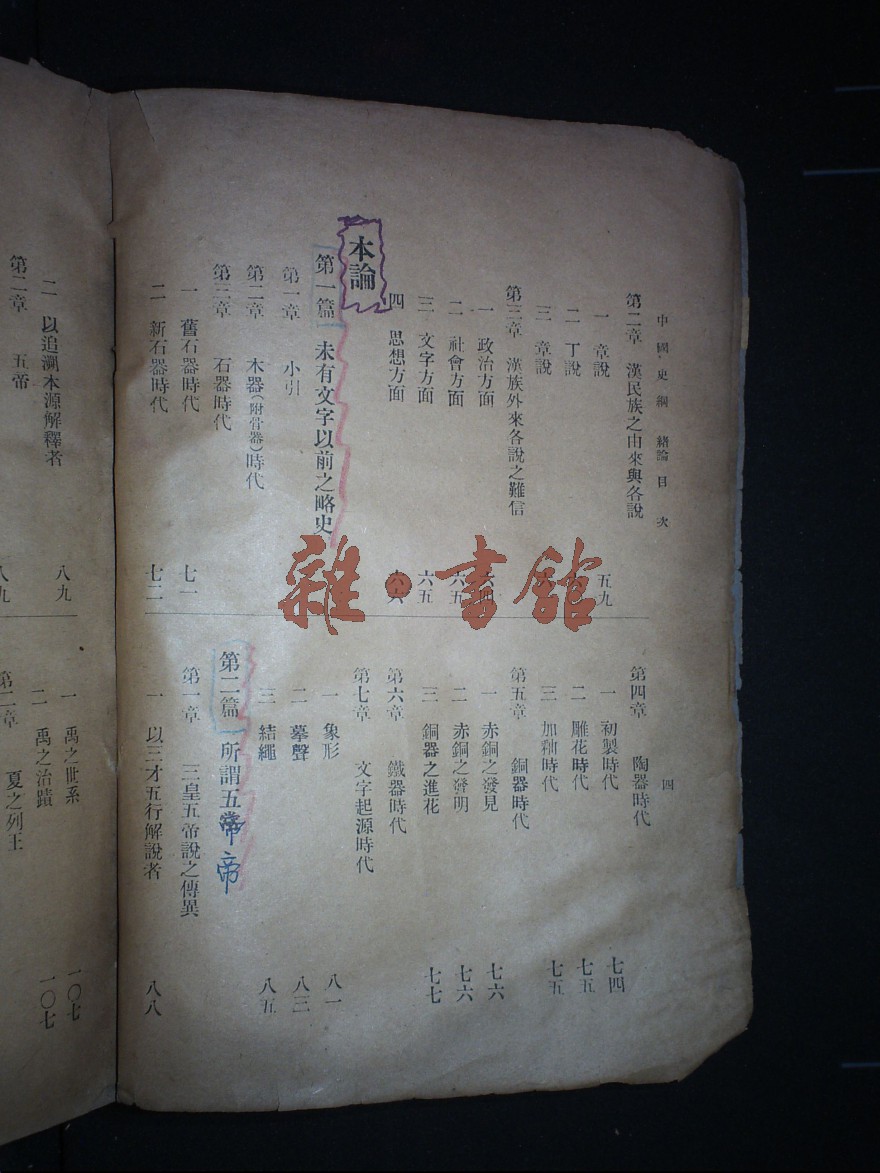 中國史綱 緒論目次 四
第二章 漢民族之由來與各說
一 章說 五九
二 丁說
三 章說
第三章 漢族外來各說之難信
一 政治方面 六四
二 社會方面 六五
三 文字方面 六五
四 思想方面 六六
本論
第一篇 未有文字以前之略史
第一章 小引
第二章 木器(附骨器)時代
第三章 石器時代
一 舊石器時代 七一
二 新石器時代 七二
第四章 陶器時代
一 初製時代 七四
二 雕花時代 七五
三 加釉時代 七五
第五章 銅器時代
一 赤銅之發見 七六
二 赤銅之發明 七六
三 銅器之進花 七七
第六章 鐵器時代
第七章 文字起源時代
一 象形 八一
二 摹聲 八三
三 結繩 八五
第二篇 所謂五帝
第一章 三皇五帝說之傳異
一 以三才五行解說者 八八
二 以追溯本源解釋者 八九
第二章 五帝 八九
一 禹之世系 一〇七
二 禹之治蹟 一〇七
第二章 夏之列王
雜·書館